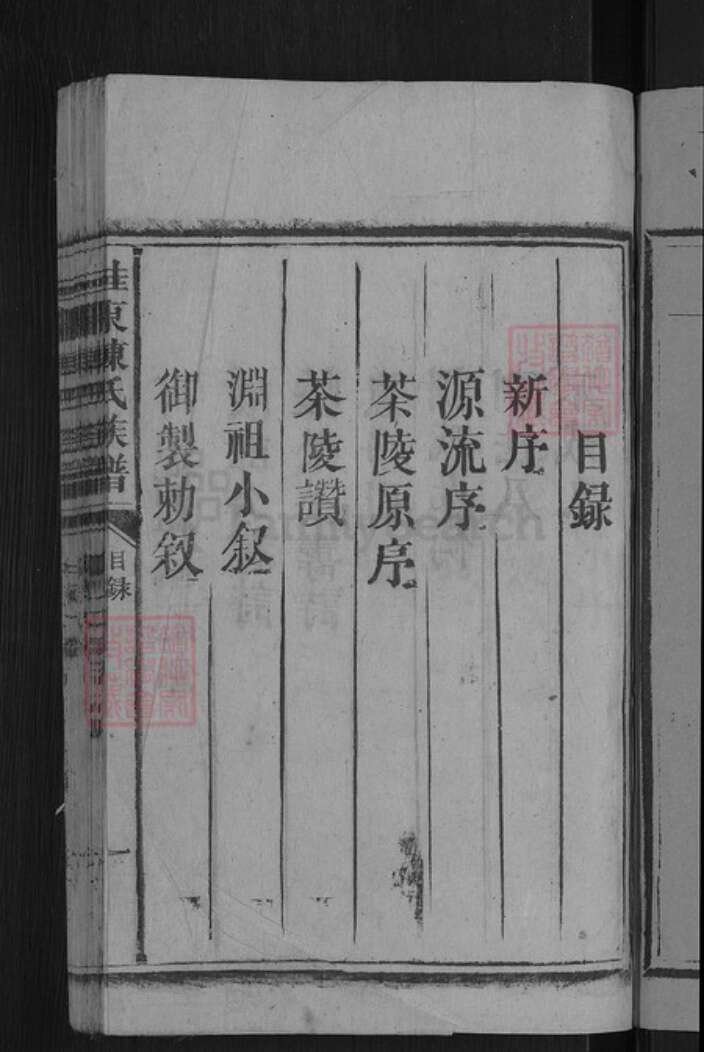 目録
新序
源流序
茶陵原序
茶陵讚
淵祖小叙
御製勅叙
桂東陳氏族譜
目録
一